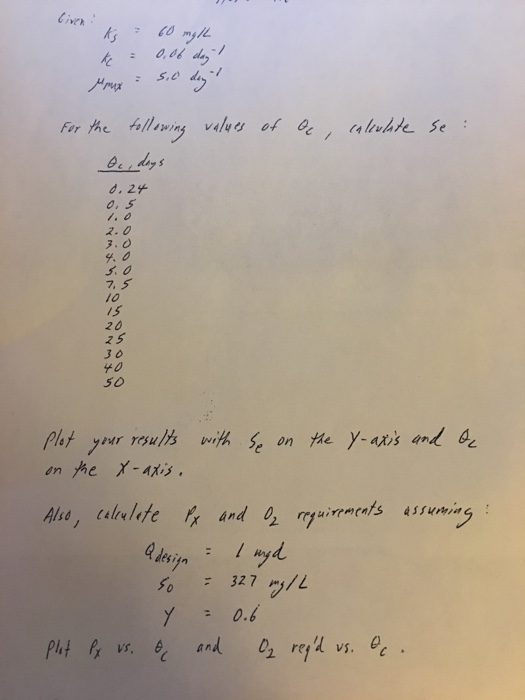 Given:
Ks = 60 mg/L
kc = 0.06 day-1
μmax = 5.0 day-1
For the following values of θc, calculate Se:
θc, days
0.24
0.5
1.0
2.0
3.0
4.0
5.0
7.5
10
15
20
25
30
40
50
Plot your results with Se on the Y-axis and θc
on the X-axis.
Also, calculate Px and O2 requirements assuming:
Qdesign = 1 mgd
So = 327 mg/L
Y = 0.6
Plot Px vs. θc and O2 req'd vs. θc.